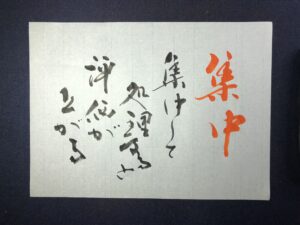 集中
集中して
処理高さ
評価が
上がる